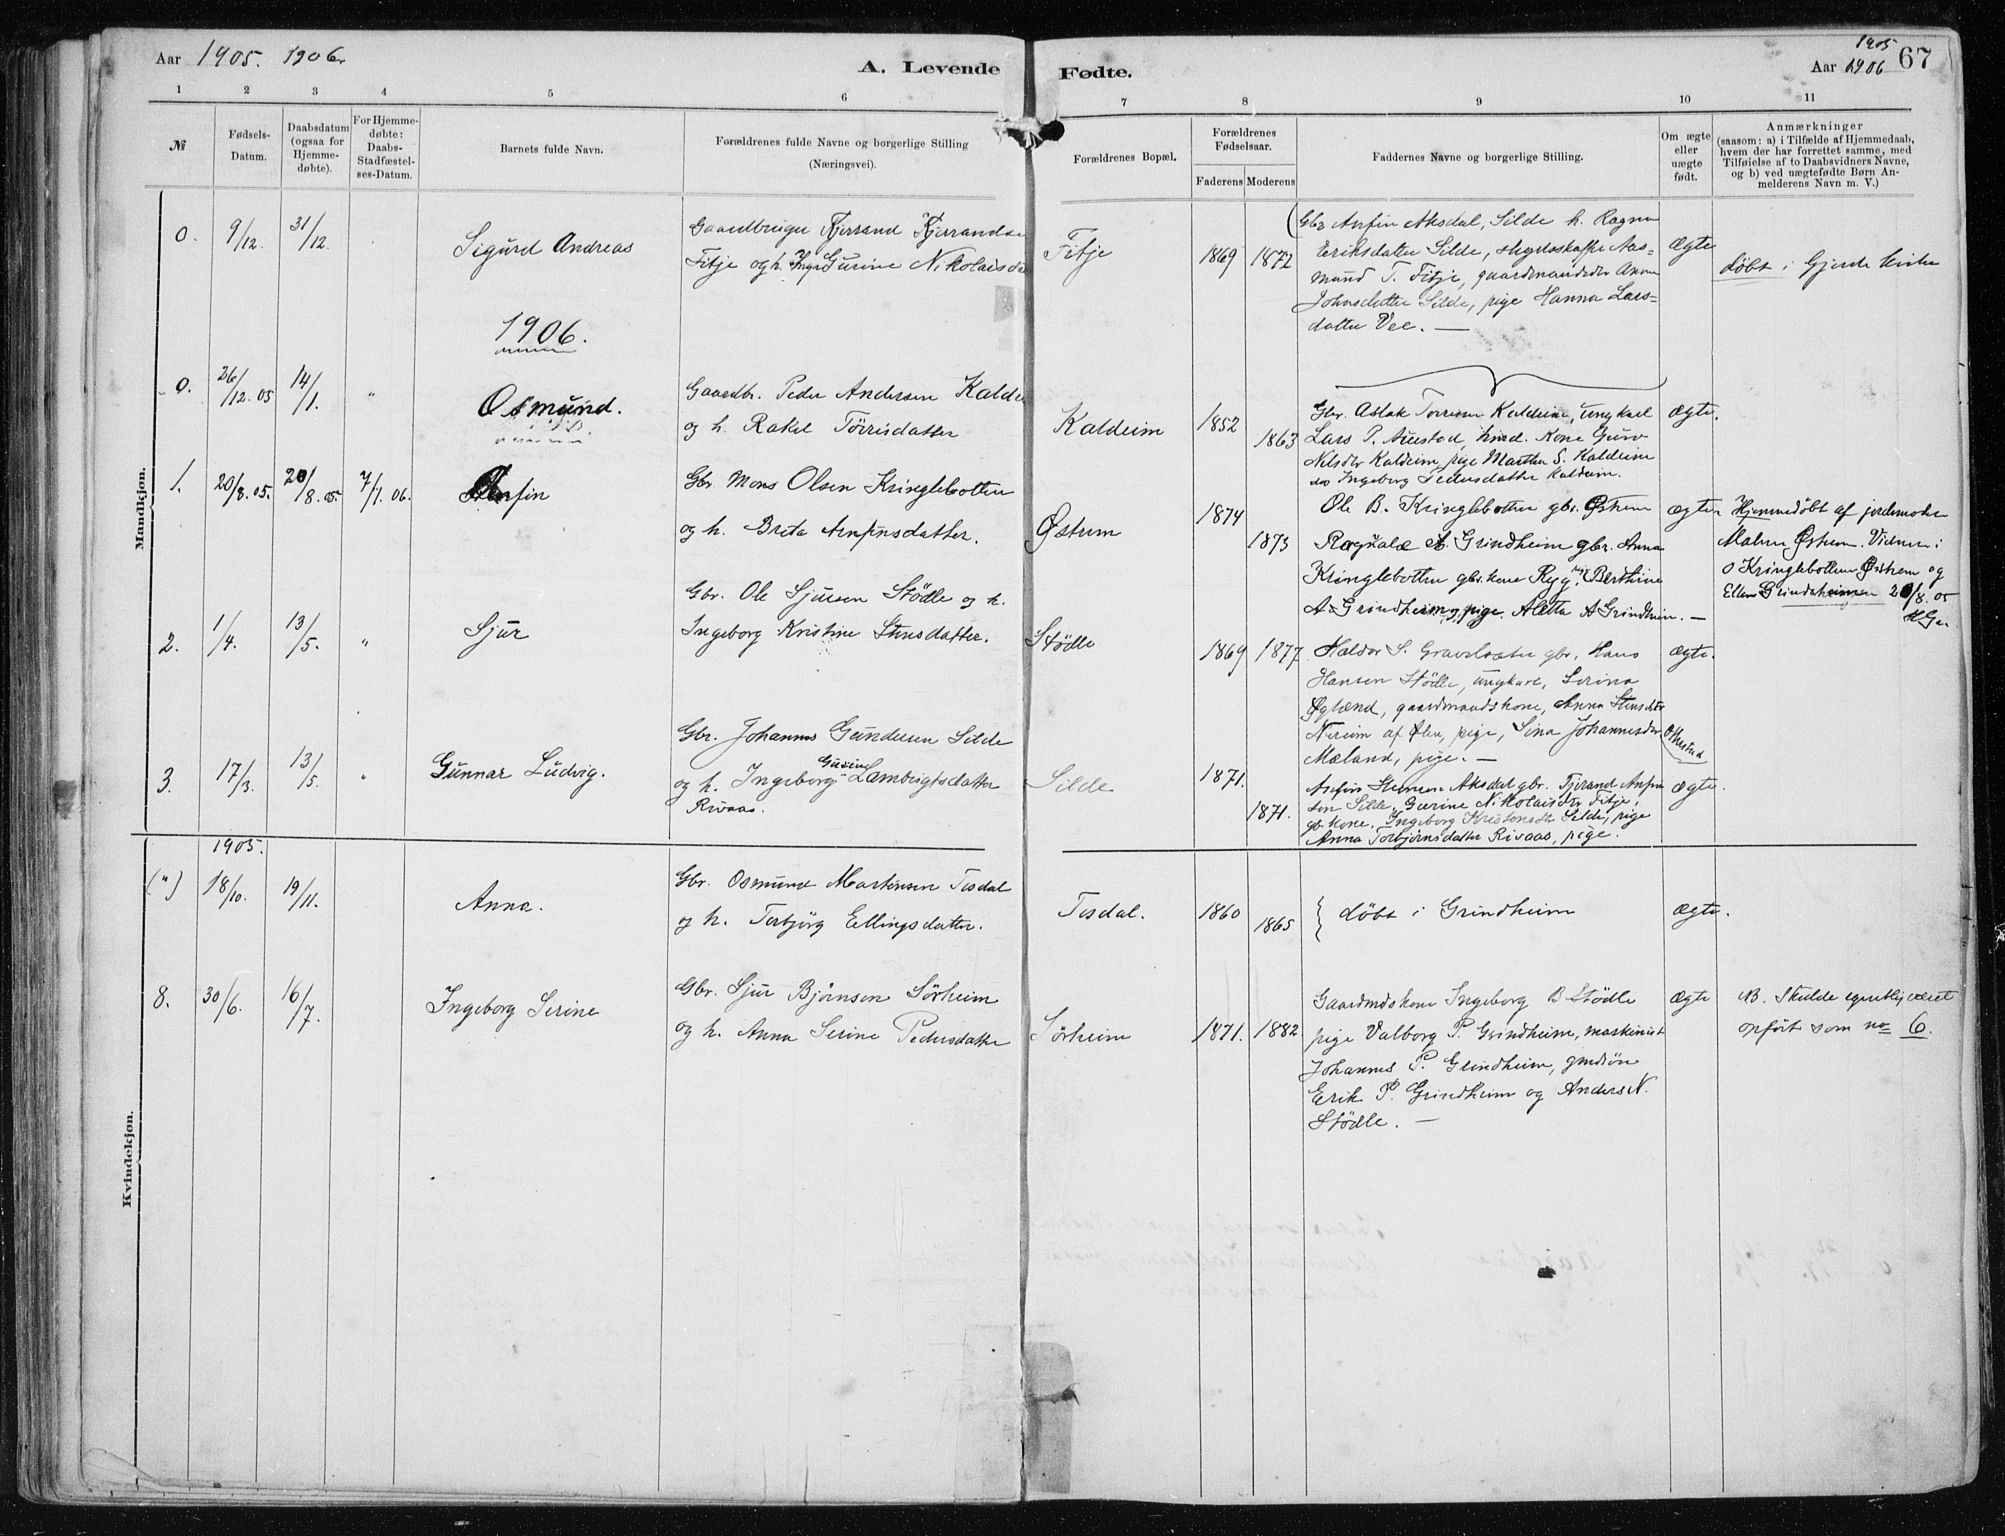 Aar 1905. 1906.
A. Levende Fødte.
1905
Aar 1906
67
1 2 3 4 5 6 7 8 9 10 11
№
Fødsels-
Datum.
Daabsdatum
(ogsaa for
Hjemme-
døbte).
For Hjemme-
døbte:
Daabs-
Stadfæstel-
ses-Datum.
Barnets fulde Navn.
Forældrenes fulde Navne og borgerlige Stilling
(Næringsvei).
Forældrenes Bopæl.
Forældrenes
Fødselsaar.
Faderens Moderens
Faddernes Navne og borgerlige Stilling.
Om ægte
eller
uægte
født.
Anmærkninger
(saasom: a) i Tilfælde af Hjemmedaab,
hvem der har forrettet samme, med
Tilføielse af to Daabsvidners Navne,
og b) ved uægtefødte Børn An-
melderens Navn m. V.)
Mandkjøn.
0. 9/12. 31/12.
Sigurd Andreas
Gaardbruger Tjerrand Tjerrandsen
Fitje og h. Inger Gurine Nikolaisd
Fitje
1869 1872
Gbr Anfin Aksdal, Silde h. Ragna
Eriksdatter Silde, Aas-
mund T. Fitje, gaardmandsdtr Anna
Johnsdatter Silde, pige Hanna Lars-
datter Vee. —
Ægte
døbt i Gjerde kirke
1906.
0. 26/12. 05 14/1. "
Osmund.
Gaardbr. Peder Andersen Kaldei
og h. Rakel Törrisdatter
Kaldeim
1852
1863
Gbr. Aslak Torresen Kaldeim, ungkarl
Lars P. Austad, kone Guro
Nilsdtr Kaldeim, pige Martha S. Kaldeim
do Ingeborg Pedersdatter Kaldeim.
Ægte.
1. 20/8. 05. 20/8. 05. 7/1. 06.
Anfin
Gbr Mons Olsen Kringlebotten
og h. Brita Arnfinsdatter.
Østum
1874
1873
Ole B. Kringlebotten gbr. Østrem
Ragnale A. Grindheim gbr. Anna
Kringlebotten gbr. kone Ryg, Berthine
A Grindheim, pige. Aletta A Grindheim. —
ægte
Hjemmedøbt af jordemoder
Malene Østrem. Vidner:
O Kringlebotten Østrem og
Ellen Grindeheimen 20/8. 05
2. 1/4. 13/5. "
Sjur
Gbr. Ole Sjursen Stödle og h.
Ingeborg Kristine Stensdatter.
Stødle
1869 1877
Haldor S. Gravelsæter gbr. Hans
Hansen Stødle, ungkarl, Serina
Øgland, gaardmandskone, Anna Stensdtr
Nerim af Ølen, pige, Sina Johannesdtr
Mæland, pige. —
ægte.
3. 17/3. 13/5. "
Gunnar Ludvig.
Gbr. Johannes Gundersen Silde
og h. Ingeborg Gurine Lambrigtsdatter
Rivaas.
Silde
1871.
1871.
Aksdal gbr. Tjerand Anfin
sen Silde, Gurine Nikolaisdtr Fitje,
gb. kone. Ingeborg Kristensdt Silde, pige
Anna Torbjørnsdatter Rivaas, pige.
Ægte.
Kvindekjøn.
1905.
(") 18/10. 19/11.
Anna.
Gbr. Osmund Martensen Tesdal
og h. Torbjörg Ellingsdatter.
Tesdal.
1860
1865
døbt i Grindheim
ægte.
8. 30/6. 16/7.
Ingeborg Serine
Gbr. Sjur Bjørnsen Sørheim
og h. Anna Serine Pedersdatter
Sørheim
1871. 1882
Gaardmdskone Ingeborg B Stødle
pige Valborg P. Grindheim, maskinist
Johannes P. Grindheim, gmdsøn
Erik P. Grindheim og Anders N.
Stödle. —
Ægte
NB. Skulde egentlig været
opført som no 6.